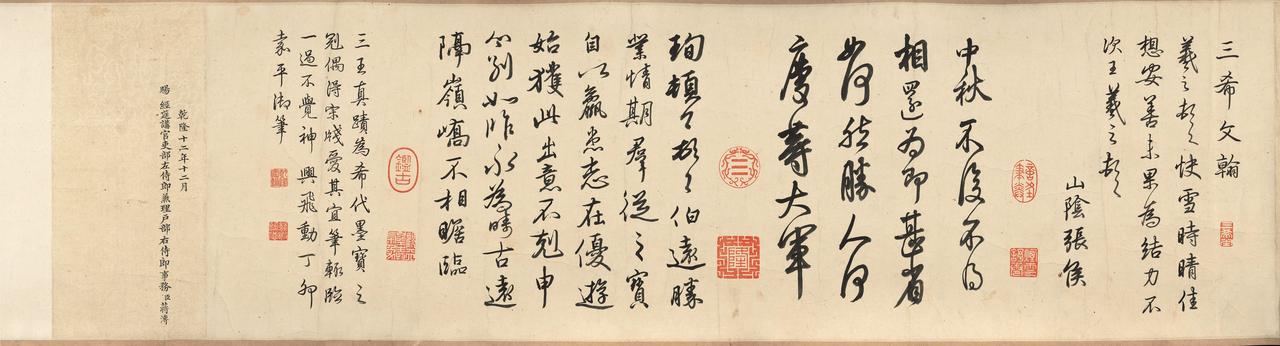 三希文翰
羲之頓首快雪時晴佳
想安善未果為結力不
次王羲之頓首
山陰張侯
中秋不復不得
相還為即甚省
如何然勝人何
慶等大軍
珣頓首頓首伯遠勝
業情期羣從之寶
自以羸患志在優遊
始獲此出意不剋申
分別如昨永為疇古遠
隔嶺嶠不相瞻臨
三王真蹟為希代墨寶之
冠偶得宋牋愛其宜筆輒臨
一過不覺神興飛動丁卯
嘉平御筆
乾隆十二年十二月
賜經筵講官吏部左侍郎兼理戶部右侍郎事務臣蔣溥
三
鑑古